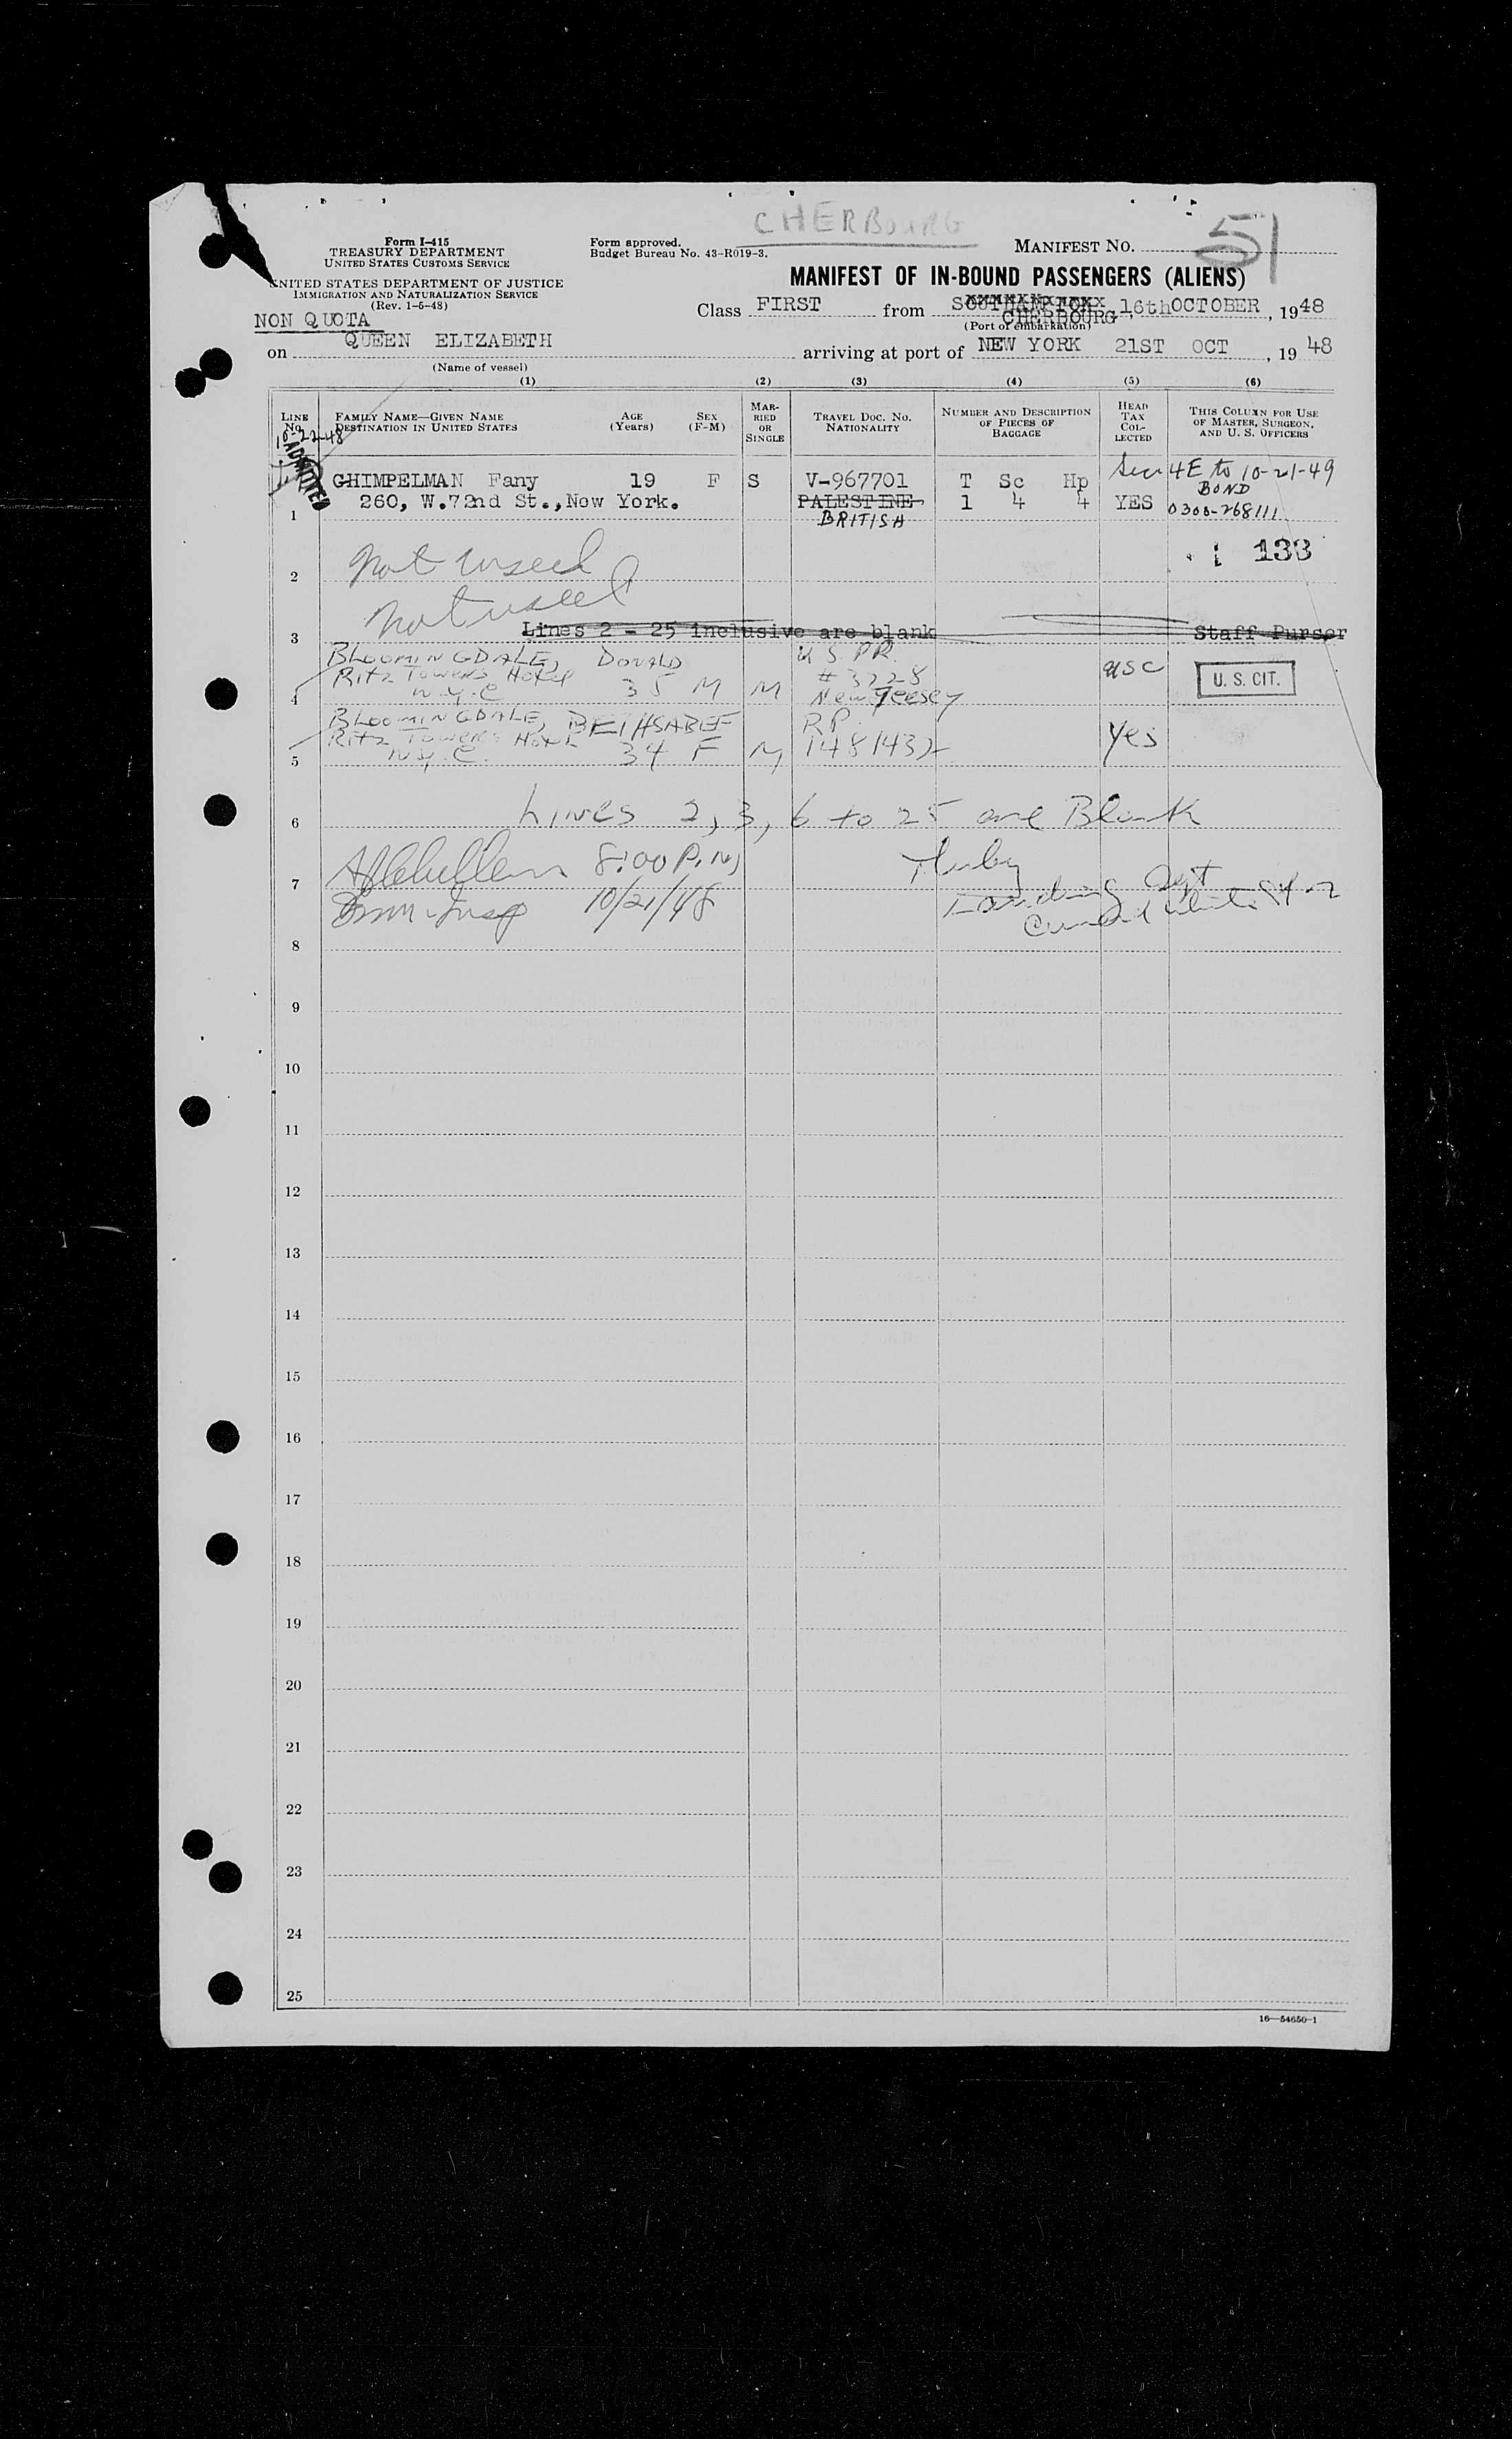 CHERBOURG
Form I-415
TREASURY DEPARTMENT
UNITED STATES CUSTOMS SERVICE
UNITED STATES DEPARTMENT OF JUSTICE
IMMIGRATION AND NATURALIZATION SERVICE
(Rev. 1-5-48)
Form approved.
Budget Bureau No. 43-R019-3.
MANIFEST NO. 51
MANIFEST OF IN-BOUND PASSENGERS (ALIENS)
Class FIRST from SOUTHAMPTON CHERBOURG, 16th OCTOBER, 1948
(Port of embarkation)
NON QUOTA
on QUEEN ELIZABETH arriving at port of NEW YORK 21ST OCT, 1948
(Name of vessel)
(1) (2) (3) (4) (5) (6)
LINE No.
FAMILY NAME—GIVEN NAME
DESTINATION IN UNITED STATES
AGE (Years)
SEX (F-M)
MARRIED OR SINGLE
TRAVEL DOC. NO.
NATIONALITY
NUMBER AND DESCRIPTION OF PIECES OF BAGGAGE
HEAD TAX COLLECTED
THIS COLUMN FOR USE OF MASTER, SURGEON, AND U. S. OFFICERS
10-22-48
ADMITTED
GHIMPELMAN Fany 19 F S V-967701 T Sc Hp 4E to 10-21-49
BOND
1 260, W.72nd St.,New York. PALESTINE 1 4 4 YES 0300-268111
BRITISH
133
2 not used
not used
3 Lines 2 - 25 inclusive are blank Staff Purser
BLOOMINGDALE, DONALD U S PR.
Ritz Towers Hotel # 3228 USC U. S. CIT.
4 N.Y.C 35 M M New Jersey
BLOOMINGDALE, BETHSABEE R.P.
Ritz Towers Hotel yes
5 N.Y.C. 34 F M 1481432
6 Lines 2, 3, 6 to 25 are Blank
8:00 P.M
7 Landing Dept
10/21/48
Cunard White Star
8
9
10
11
12
13
14
15
16
17
18
19
20
21
22
23
24
25
16—54650-1